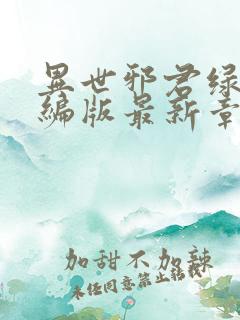 異世邪君绿
编版最新章
加甜不加辣
未经同意禁止转载